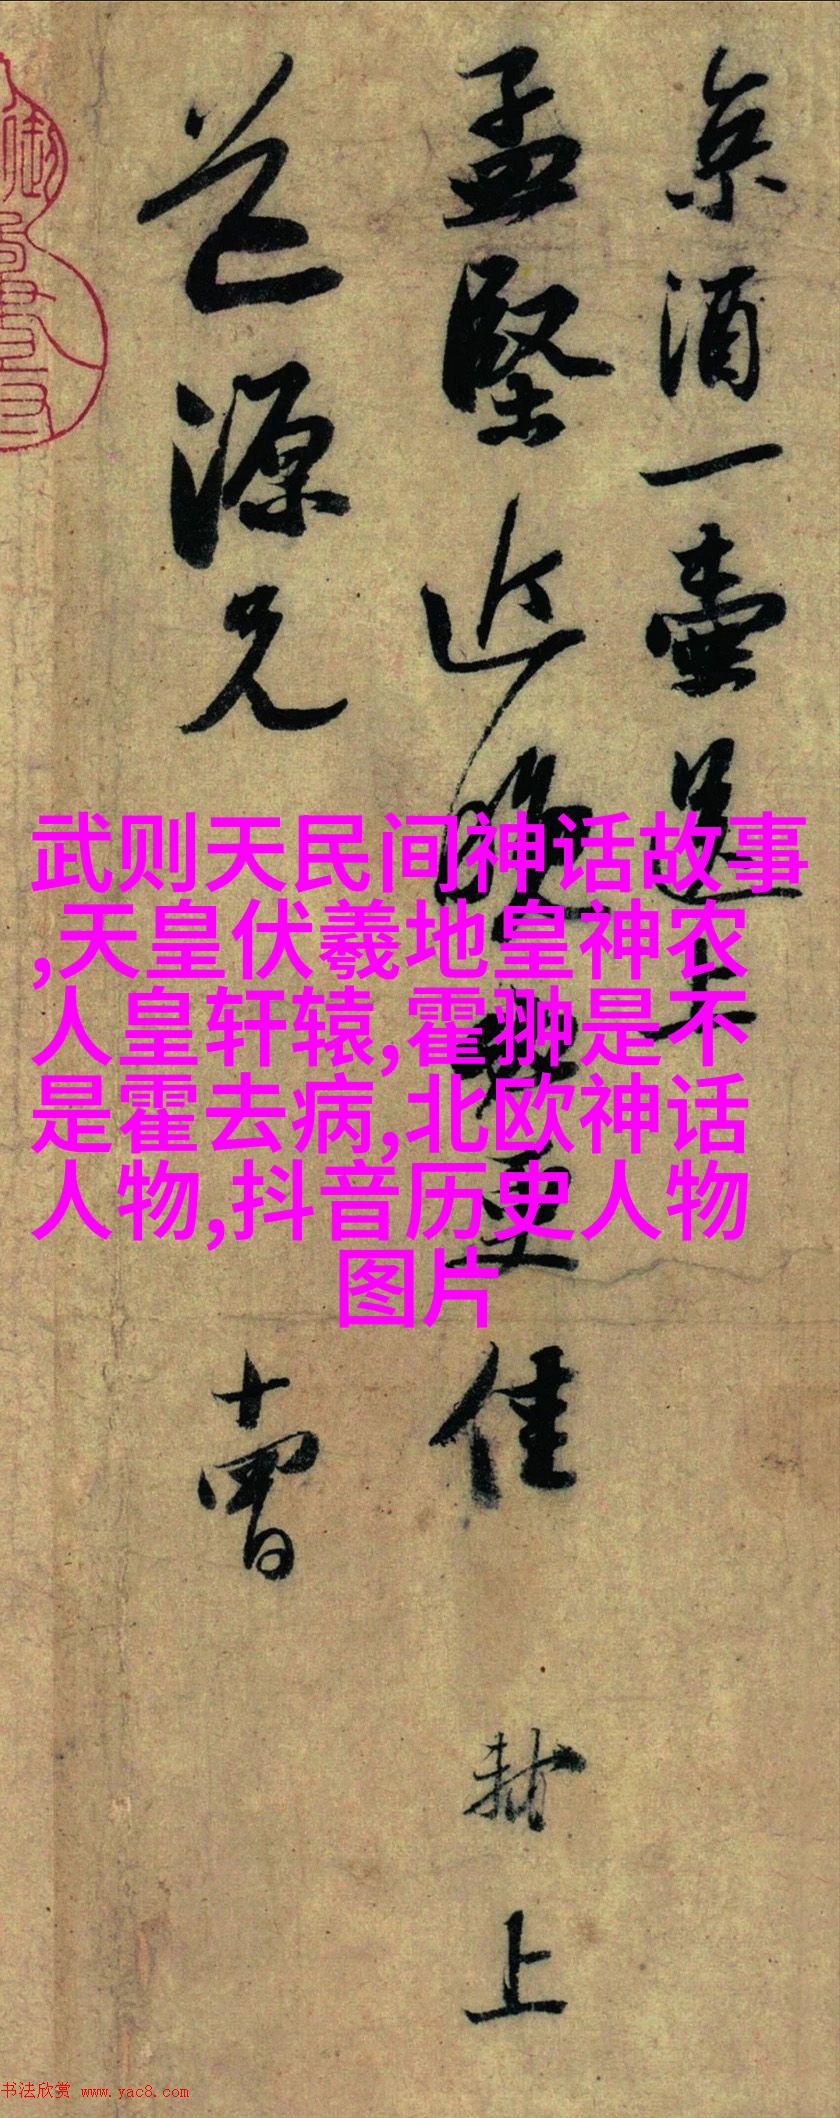 京酒一壶送上
孟坚近晚必更佳
芾上
芷源兄
十曹
武则天民间神话故事
,天皇伏羲地皇神农
人皇轩辕,霍翀是不
是霍去病,北欧神话
人物,抖音历史人物
图片
书法欣赏 www.yac8.com